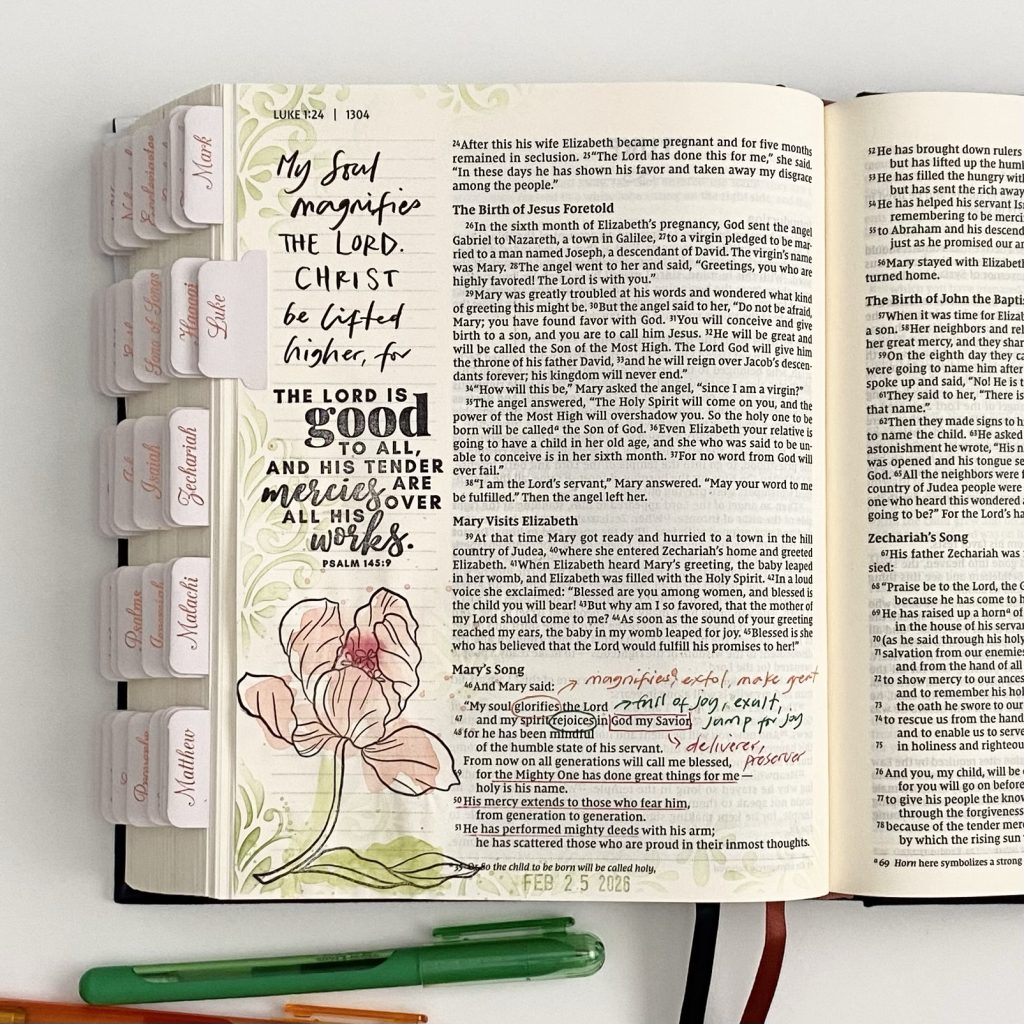 LUKE 1:24 | 1304
My Soul
magnifies
THE LORD.
CHRIST
be lifted
higher, for
THE LORD IS
good
TO ALL,
AND HIS TENDER
mercies ARE
OVER
ALL HIS
works.
PSALM 145:9
24After this his wife Elizabeth became pregnant and for five months
remained in seclusion. 25"The Lord has done this for me," she said.
"In these days he has shown his favor and taken away my disgrace
among the people."
The Birth of Jesus Foretold
26In the sixth month of Elizabeth's pregnancy, God sent the angel
Gabriel to Nazareth, a town in Galilee, 27to a virgin pledged to be mar-
ried to a man named Joseph, a descendant of David. The virgin's name
was Mary. 28The angel went to her and said, "Greetings, you who are
highly favored! The Lord is with you."
29Mary was greatly troubled at his words and wondered what kind
of greeting this might be. 30But the angel said to her, "Do not be afraid,
Mary; you have found favor with God. 31You will conceive and give
birth to a son, and you are to call him Jesus. 32He will be great and
will be called the Son of the Most High. The Lord God will give him
the throne of his father David, 33and he will reign over Jacob's descen-
dants forever; his kingdom will never end."
34"How will this be," Mary asked the angel, "since I am a virgin?"
35The angel answered, "The Holy Spirit will come on you, and the
power of the Most High will overshadow you. So the holy one to be
born will be calleda the Son of God. 36Even Elizabeth your relative is
going to have a child in her old age, and she who was said to be un-
able to conceive is in her sixth month. 37For no word from God will
ever fail."
38"I am the Lord's servant," Mary answered. "May your word to me
be fulfilled." Then the angel left her.
Mary Visits Elizabeth
39At that time Mary got ready and hurried to a town in the hill
country of Judea, 40where she entered Zechariah's home and greeted
Elizabeth. 41When Elizabeth heard Mary's greeting, the baby leaped
in her womb, and Elizabeth was filled with the Holy Spirit. 42In a loud
voice she exclaimed: "Blessed are you among women, and blessed is
the child you will bear! 43But why am I so favored, that the mother of
my Lord should come to me? 44As soon as the sound of your greeting
reached my ears, the baby in my womb leaped for joy. 45Blessed is she
who has believed that the Lord would fulfill his promises to her!"
Mary's Song
46And Mary said: → magnifies, extol, make great
"My soul glorifies the Lord → full of joy, exult,
47 and my spirit rejoices in God my Savior, jump for joy
48for he has been mindful
of the humble state of his servant. ↳ deliverer,
preserver
From now on all generations will call me blessed,
49 for the Mighty One has done great things for me—
holy is his name.
50His mercy extends to those who fear him,
from generation to generation.
51He has performed mighty deeds with his arm;
he has scattered those who are proud in their inmost thoughts.
a 35 Or So the child to be born will be called holy,
FEB 25 2026
52He has brought down rulers
but has lifted up the
53He has filled the hungry
but has sent the rich away
54He has helped his servant
remembering to be
55to Abraham and his
just as he promised our
56Mary stayed with Elizabeth
turned home.
The Birth of John the
57When it was time for
a son. 58Her neighbors and
her great mercy, and they
59On the eighth day they
were going to name him after
spoke up and said, "No! He is
61They said to her, "There is
that name."
62Then they made signs to
to name the child. 63He asked
astonishment he wrote, "His
was opened and his tongue
God. 65All the neighbors were
country of Judea people were
one who heard this wondered
going to be?" For the Lord's
Zechariah's Song
67His father Zechariah was
sied:
68"Praise be to the Lord, the
because he has come to
69He has raised up a horna of
in the house of his
70(as he said through his holy
71salvation from our enemies
and from the hand of all
72to show mercy to our
and to remember his
73 the oath he swore to our
74to rescue us from the hand
and to enable us to serve
75 in holiness and
76And you, my child, will be
for you will go on before
77to give his people the
through the forgiveness
78because of the tender
by which the rising sun
a 69 Horn here symbolizes a strong
Mark
Ecclesiastes
Luke
Haggai
Song of Songs
Zechariah
Isaiah
Malachi
Jeremiah
Psalms
Matthew
Proverbs